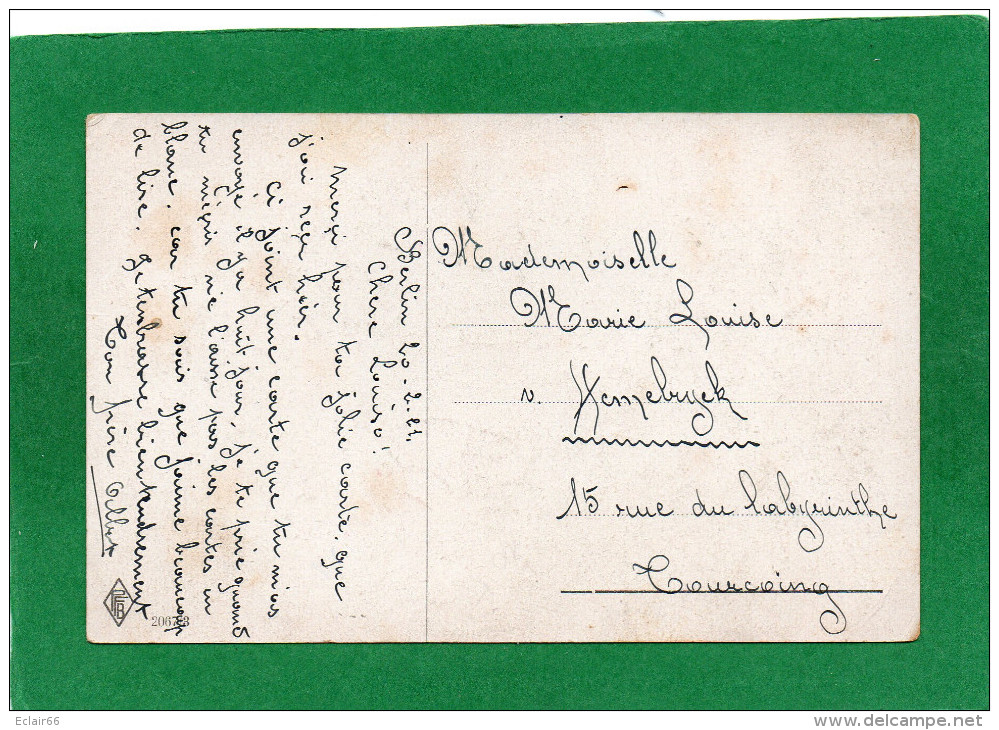 Berlin 20-2-21,
Chère Louise!
Merci pour ta jolie carte, que
j'ai reçu hier.
Ci joint une carte que tu m'as
envoyé il y a huit jour, je te prie quand
tu m'écris ne laisse pas les cartes en
blanc. car tu sais que j'aime beaucoup
de lire. Je t'embrasse bien tendrement
Ton frère Albert
Mademoiselle
Marie Louise
v. Hemebryck
15 rue du labyrinthe
Tourcoing
PFB
206
Eclair66
www.delcampe.net